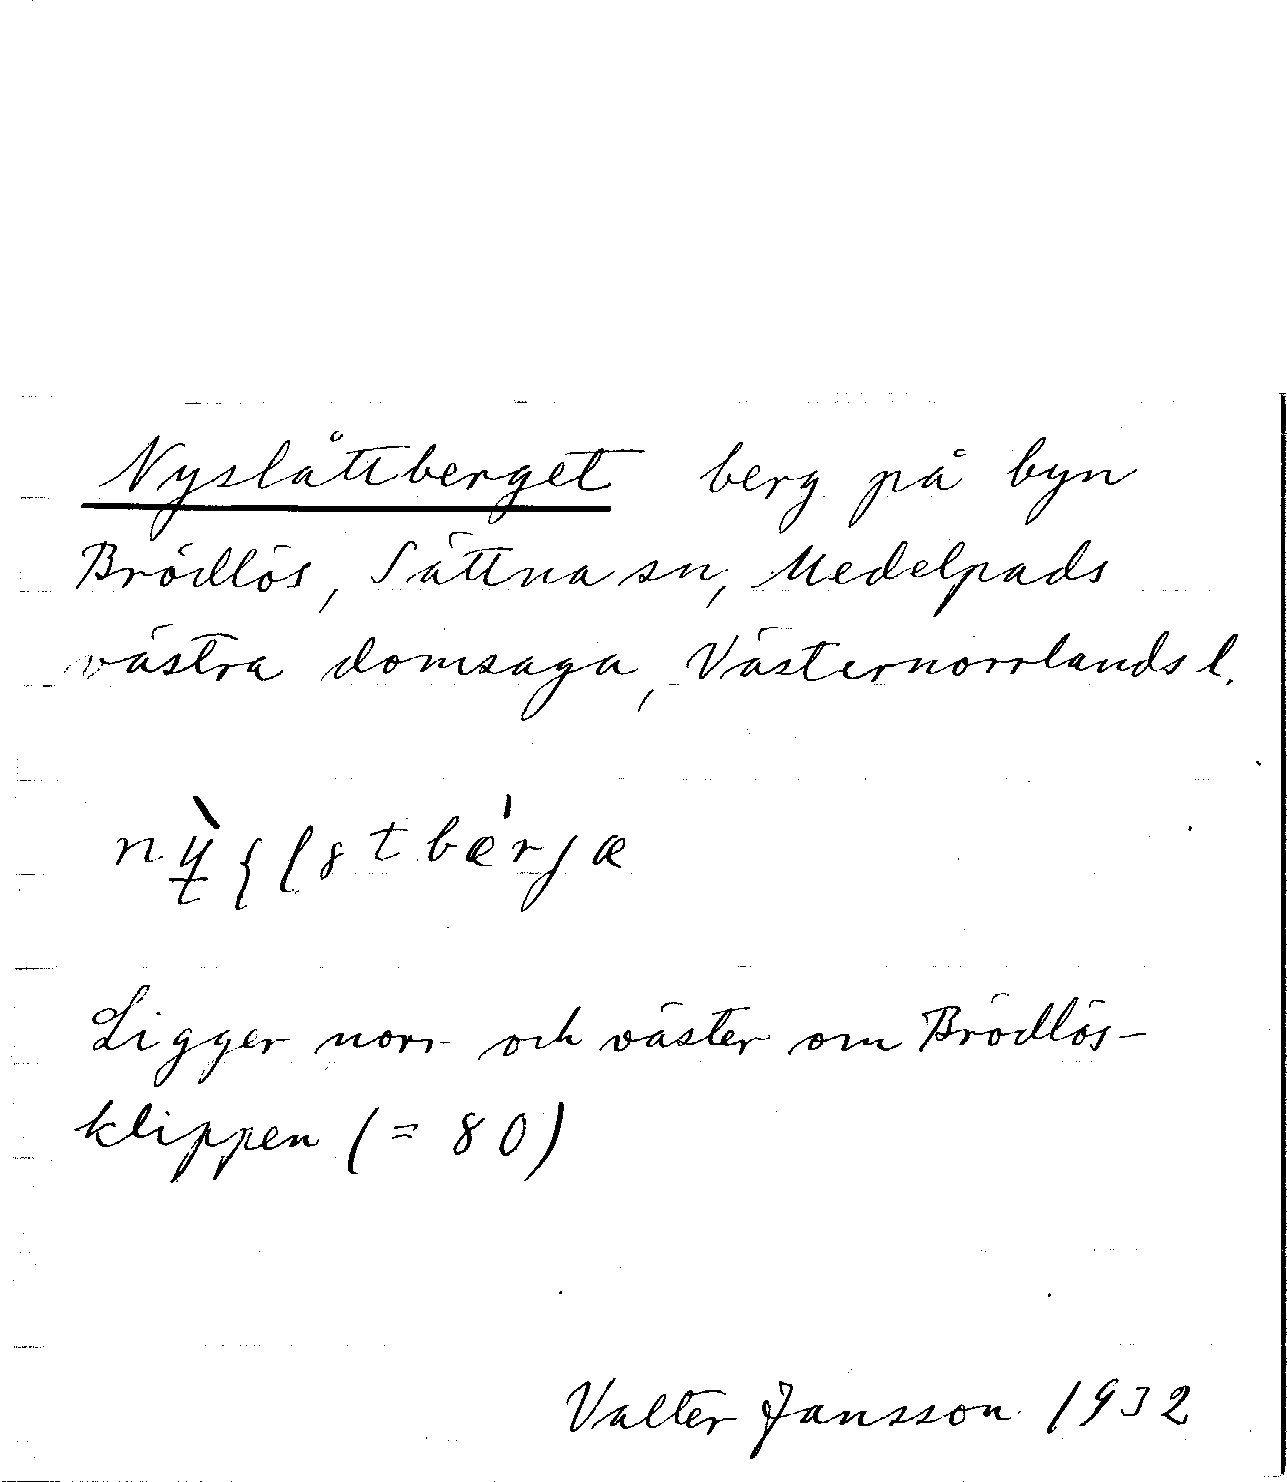 Nyslåttberget berg på byn
Brödlös, Sättna sn, Medelpads
västra domsaga, Västernorrlands l.
Ligger norr och väster om Brödlös-
klippen (= 80)
Valter Jansson 1932